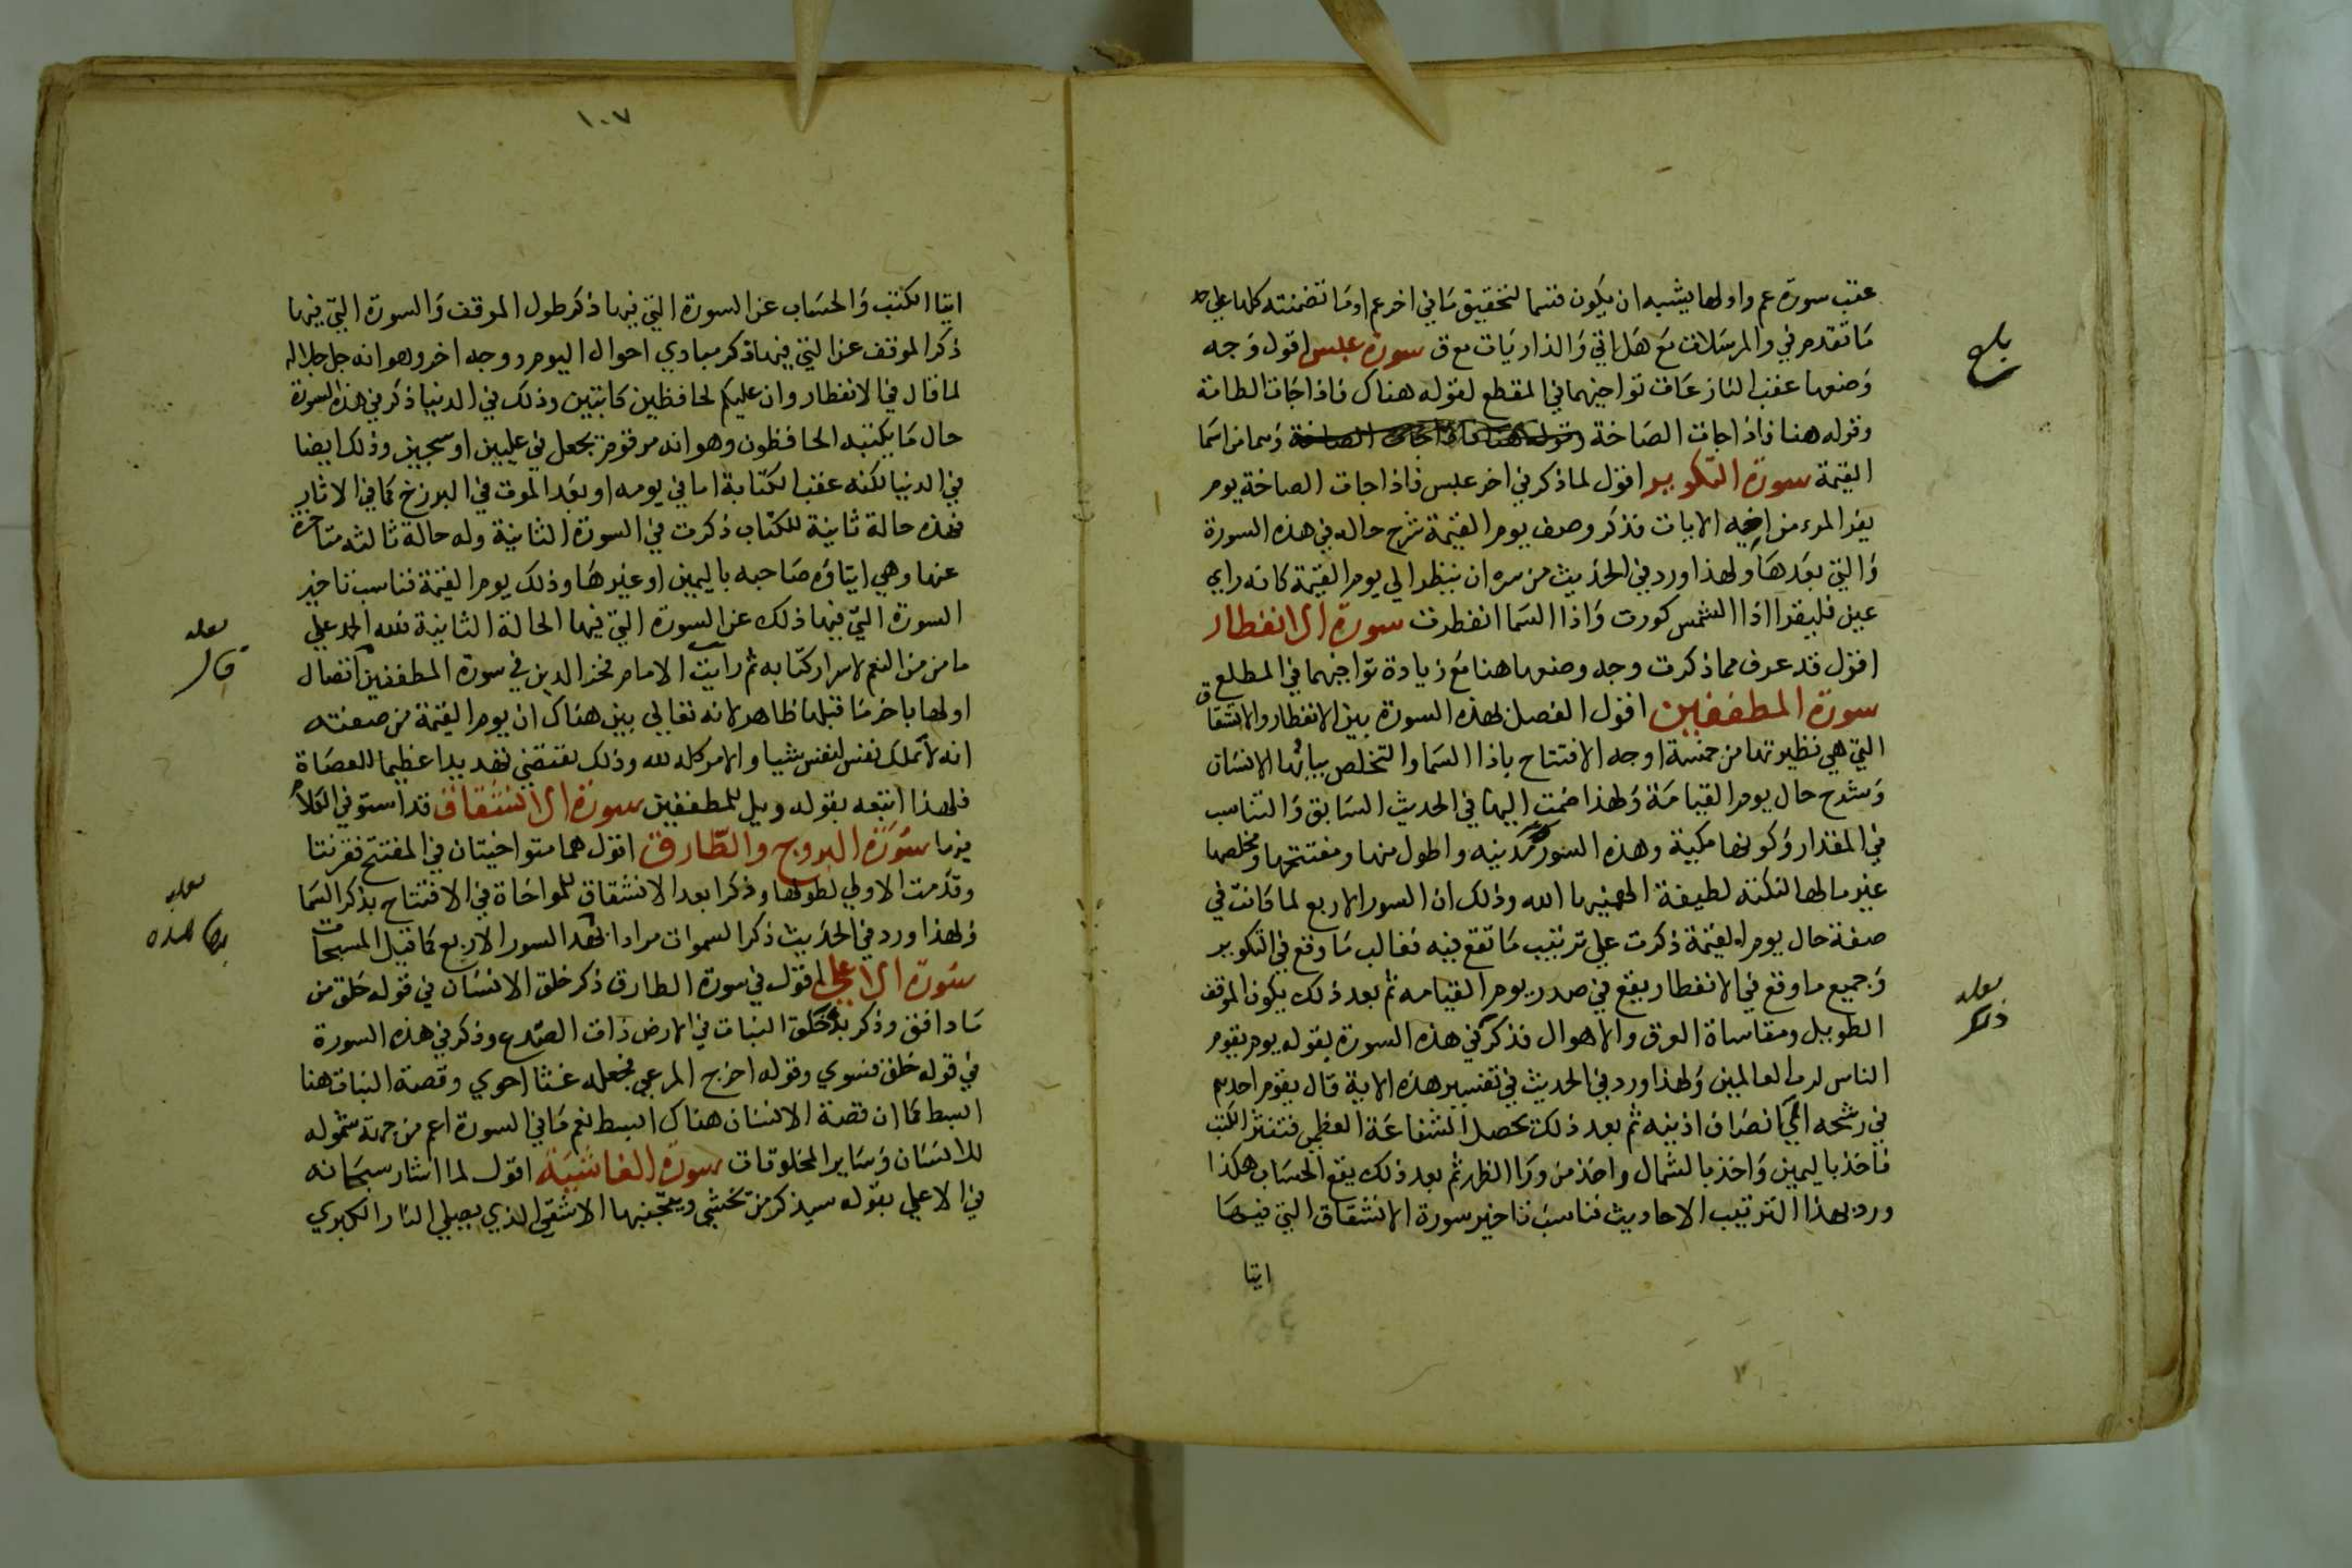 عقب سورة عم واولها يشبه ان يكون قسما لتحقيق مَا في اخر عم او مَا تضمنته كلها علي حد
مَا تقدم في والمرسَلات مَع هَل اتي وَالذاريَات مع ق سورة عبس اقول وَجه
وَضعها عقب النازعَات تواخيهما في المقطع لقوله هناك فاذا جَات الطامة
وقوله هنا فاذا جات الصَاخة وَهما من اسمَا
القيمة سورة التكوير اقول لما ذكر في اخر عبس فاذا جات الصاخة يوم
يفر المرء من اخيه الايات فذكر وصف يوم القيمة شرح حاله في هذه السورة
وَالتي بعَدهَا ولهذا ورد في الحَديث من سره ان ينظر الي يوم القيَمة كانه راي
عين فليقرا اذا الشمس كورت وَاذا السَما انفطرت سورة الانفطار
اقول قد عرف مما ذكرت وجه وضعها هنا مَع زيادة تواخيهما في المطلع
سورة المطففين اقول الفصل لهذه السورة بين الانفطار والانشقاق
التي هي نظيرتها من خمسة اوجه الافتتاح باذا السَما والتخلص بيا يها الانسَان
وَشرح حال يوم القيامَة وَلهذا ضمت اليهَا في الحديث السَابق وَالتناسب
في المقدار وَكونها مكية وهذه السورة مَدنيه واطول منها ومفتتحها ومخلصها
غير مالها لنكتة لطيفة الهمنيها الله وذلك ان السور الاربع لما كانت في
صفة حال يوم القيمة ذكرت علي ترتيب مَا تقع فيه فغالب مَا وقع في التكوير
وَجميع ما وقع في الانفطار يقع في صدر يوم القيامه ثم بعد ذلك يكون الموقف
الطويل ومقاساة العرق والاهوال فذكر في هذه السورة بقوله يوم يقوم
الناس لرب العالمين وَلهذا ورد في الحديث في تفسير هذه الاية قال يقوم احدهم
في رشحه الي انصَاف اذنيه ثم بعد ذلك تحصل الشفاعَة العظمي فتنشر الكتب
فاخذ باليمين وَاخذ بالشمال واخذ من ورَا الظهر ثم بعد ذلك يقع الحسَاب هكذا
ورد بهذا الترتيب الاحاديث فناسب تاخير سورة الانشقاق التي فيهَا
ايتا
ذلك
١٠٧
ايتا الكتب وَالحسَاب عن السورة التي فيها ذكر طول الموقف وَالسورة التي فيها
ذكر الموقف عن التي فيها ذكر مبادي احوال اليوم ووجه اخر وهو انه جل جلاله
لما قال في الانفطار وان عليكم لحافظين كاتبين وذلك في الدنيا ذكر في هذه السورة
حال مَا يكتبه الحافظون وهو انه مرقوم يجعل في عليين او سجين وذلك ايضا
في الدنيا لكنه عقب الكتابة اما في يومه او بعَد الموت في البرزخ كما في الاثار
فهذه حالة ثانية للكتاب ذكرت في السورة الثانية وله حالة ثالثه متاخرة
عنها وهي ايتاؤه صَاحبه باليمين او غيرهَا وذلك يوم القيمة فناسب تاخير
السورة التي فيها ذلك عن السورة التي فيها الحالة الثانية فلله الحمد علي
ما من من الفهم لاسرار كتابه ثم رايت الامام فخر الدين في سورة المطففين اتصال
قال
اولها باخر مَا قبلها ظاهر لانه تعالي بين هناك ان يوم القيمة من صفته
انه لا تملك نفس لنفس شيا والامر كله لله وذلك يقتضي تهديدا عظيما للعصَاة
فلهذا اتبعه بقوله ويل للمطففين سورة الانشقاق قد استوفي الكلام
فيها سورة البروج والطارق اقول هما متواخيتان في المفتتح فقرنتا
وقدمت الاولي لطولها وذكرا بعد الانشقاق للمواخَاة في الافتتاح بذكر السَما
وَلهذا ورد في الحَديث ذكر السموات مرادا بها هذه السور الاربع كما قيل المسبحات
سورة الاعلي اقول في سورة الطارق ذكر خلق الانسَان في قوله خلق من
مَا دافق وذكر بدء خلق النبات في الارض ذات الصدع وذكر في هذه السورة
في قوله خلق فسوي وقوله اخرج المرعي فجعله غثا احوي وقصة النبات هنا
ابسط كما ان قصة الانسَان هناك ابسط نعم مَا في السورة اعم من جهة شموله
للانسَان وَسَاير المخلوقات سورة الغاشية اقول لما اشار سبحَانه
في الاعلي بقوله سيذكر من يخشي ويتجنبها الاشقي الذي يصلي النار الكبري